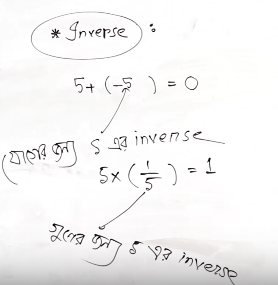 * Inverse :
5 + (-5) = 0
(যোগের জন্য 5 এর inverse
5 × (1/5) = 1
গুণের জন্য 5 এর inverse